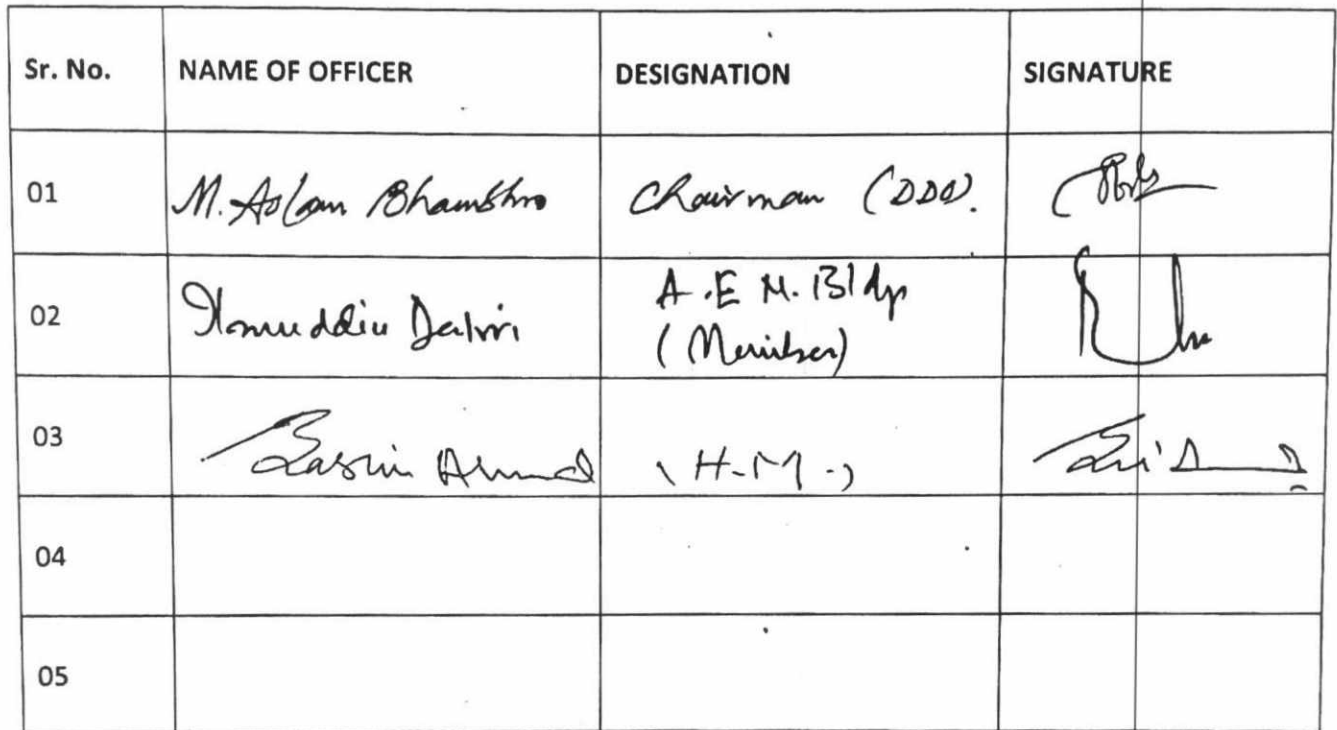 Sr. No. NAME OF OFFICER DESIGNATION SIGNATURE
01 M. Aslam Bhambhro Chairman (DDO).
02 A.E M. Bldg
(Member)
03 Ahmed (H.M.)
04
05